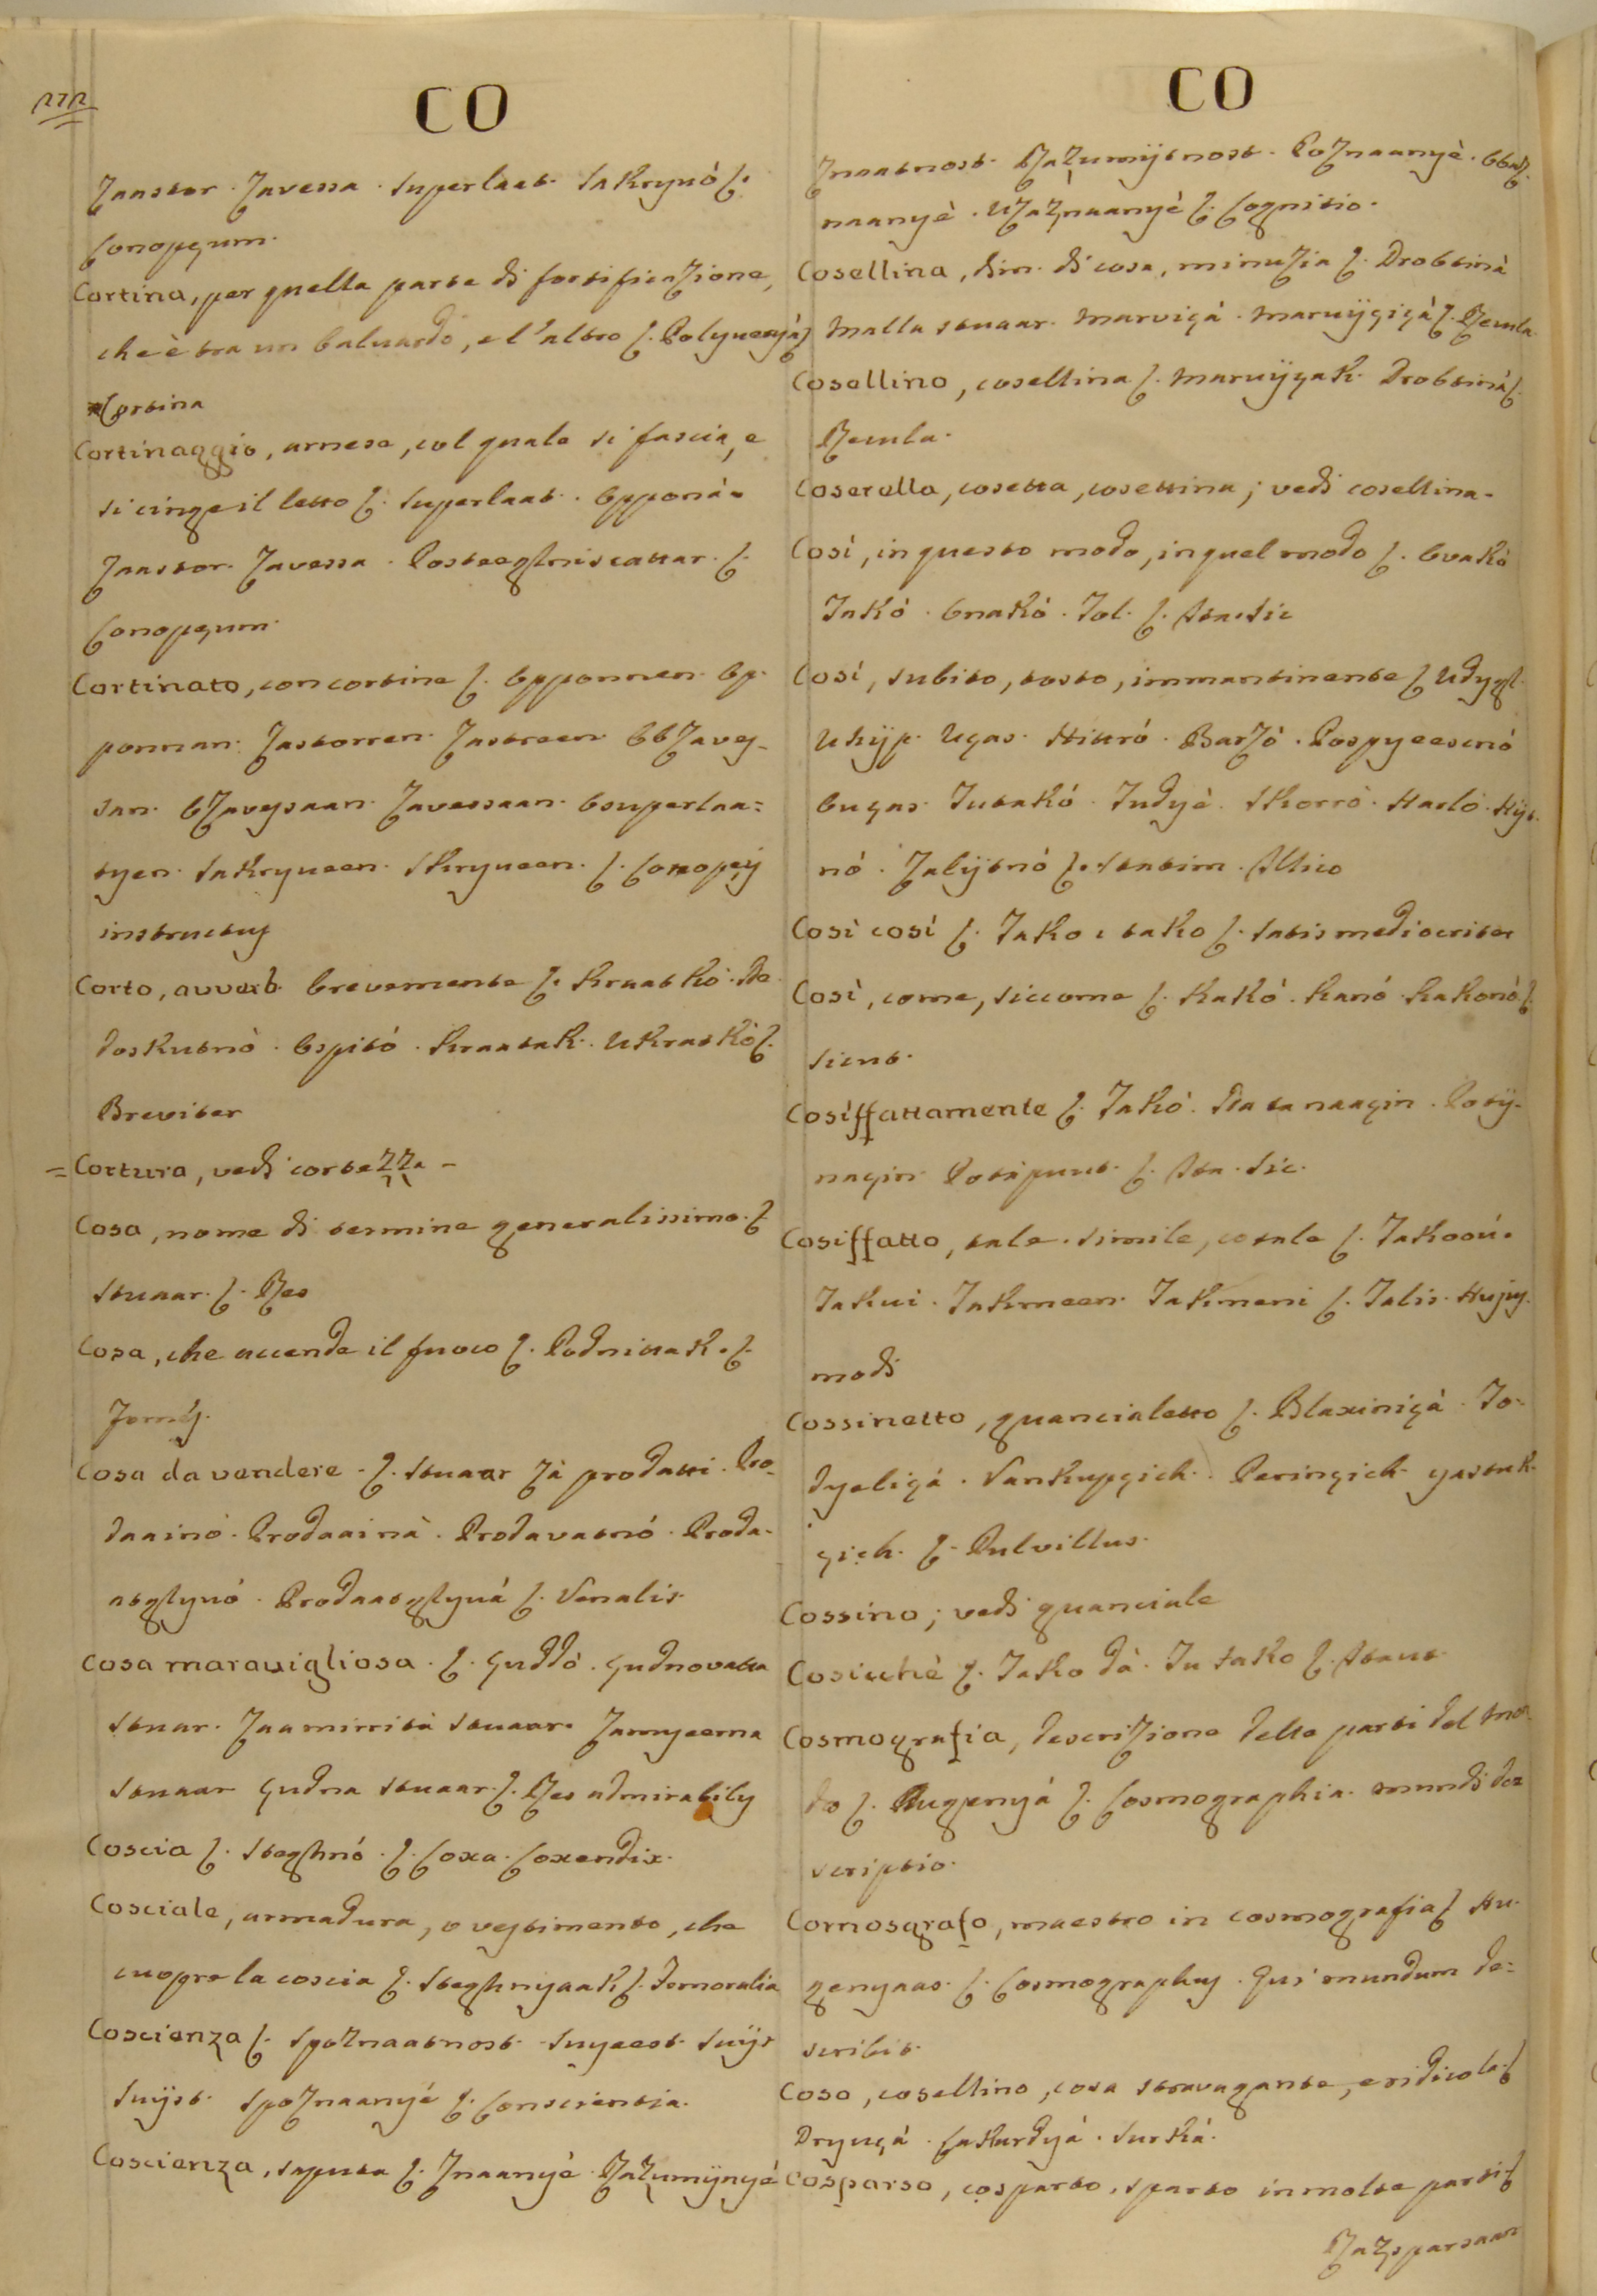 272
CO
Zaastor. Zavessa. Superlaat. Sakryuó ſ.
Conopeum.
Cortina, per quella parte di fortificazione,
che è tra un baluardo, e l'altro ſ. Polyuenyá ſ
Cortina
Cortinaggio, arnese, col quale si fascia, e
si cinge il letto ſ. Superlaat. Opponá.
Zaastor. Zavessa. Posteeglniscattar. ſ.
Conopeum.
Cortinato, con cortine ſ. Opponnen. Op-
ponnan. Zastorren. Zastreen. Obzaves-
san. Ozavessaan. Zavessaan. Osuperlaa=
tyen. Sakryueen. Skryueen. ſ. Conopeij
instructus
Corto, avverb. brevemente ſ. Kraatkó.
doskutnó. Ospitó. Kraatak. Ukratkó ſ.
Breviter
= Cortura, vedi cortezza -
Cosa, nome di termine generalissimo. ſ.
Stuaar. ſ. Res
Cosa, che accende il fuoco ſ. Podnittak. ſ.
Fomes.
Cosa da vendere. ſ. Stuaar zà prodatti. Pro-
daainó. Prodaainà. Prodavatnó. Proda-
atglyuó. Prodaatglyuá ſ. Venalis.
Cosa maravigliosa. ſ. Çuddó. Çudnovatta
stuar. Zaamirrita stuaar. Zamyeerna
stuaar Çudna stuaar. ſ. Res admirabilis
Coscia ſ. Steghnó. ſ. Coxa. Coxendix.
Cosciale, armadura, o vestimento, che
cuopre la coscia ſ. Steghnyaak ſ. Femoralia
Coscienza ſ. Spoznaatnost. Suyeest. Suijs
Suijst. Spoznaanyé ſ. Conscientia.
Coscienza, saputa ſ. Znaanyè. Razumijnyé
CO
Znaatnost. Razumijtnost. Poznaanyè. Obaz-
naanyè. Uzaznaanyè ſ. Cognitio.
Cosellina, dim. di cosa, minuzia ſ. Drobtinà
Malla stuaar. Marviçá. Maruijçiçá ſ. Recula.
Cosellino, cosellina ſ. Maruijçak. Drobtinà ſ.
Recula.
Coserella, cosetta, cosettina; vedi cosellina.
Così, in questo modo, in quel modo ſ. Ovakó
Takó. Onakó. Tol. ſ. Ita. Sic
Così, subito, tosto, immantinente ſ. Udygl.
Uhijp. Uças. Hittró. Barzó. Pospyeescnó
Ouças. Tutakó. Tudyè. Skorró. Harló. Hijt-
nó. Zalijtnó ſ. Statim. Illico
Così così ſ. Tako i tako ſ. Satis mediocriter
Così, come, siccome ſ. Kakó. Kanó. Kakonó ſ.
Sicut.
Cosìffattamente ſ. Takó. Na ta naaçin. Potij-
naçin. Potipuut. ſ. Ita. Sic.
Cosiffatto, tale. simile, cotale ſ. Takoou.
Takui. Takmeen. Takmeni ſ. Talis. Hujus-
modi
Cossinetto, guancialetto ſ. Blaxiniçá. To-
dyeliçá. Vankuſçich. Perinçich. yastuk-
çich. ſ. Pulvillus.
Cossino; vedi guanciale
Cosicchè ſ. Tako dà. Tu tako ſ. Itaut.
Cosmografia, descrizione delle parti del mon-
do ſ. ſ. Cosmographia. mundi de=
scriptio.
Cornosgrafo, maestro in cosmografia ſ. Hu-
genyaas. ſ. Cosmographus. Qui mundum de=
scribit.
Coso, cosellino, cosa stravagante, e ridicola. ſ
Dryuçá. Cakurdyá. Surká.
Cosparso, cosparto, sparto in molte parti ſ
Razsparsaan